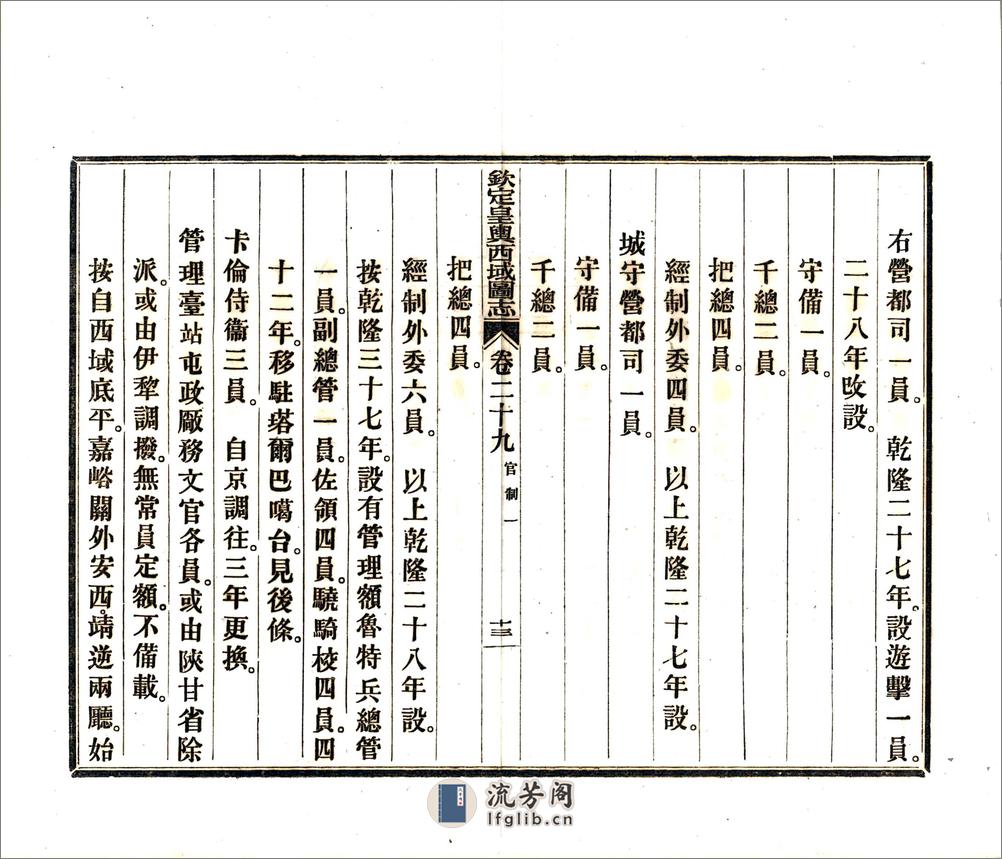 右營都司一員。　乾隆二十七年。設遊擊一員。
二十八年改設。
守備一員。
千總二員。
把總四員。
經制外委四員。　以上乾隆二十七年設。
城守營都司一員。
守備一員。
千總二員。
把總四員。
欽定皇輿西域圖志　卷二十九　官制一　十三
經制外委六員。　以上乾隆二十八年設。
按乾隆三十七年。設有管理額魯特兵總管
一員。副總管一員。佐領四員。驍騎校四員。四
十二年。移駐塔爾巴噶台。見後條。
卡倫侍衞三員。　自京調往。三年更換。
管理臺站屯政廠務文官各員。或由陝甘省除
派。或由伊犂調撥。無常員定額。不備載。
按自西域底平。嘉峪關外安西。靖逆兩廳。始
流芳阁
lfglib.cn